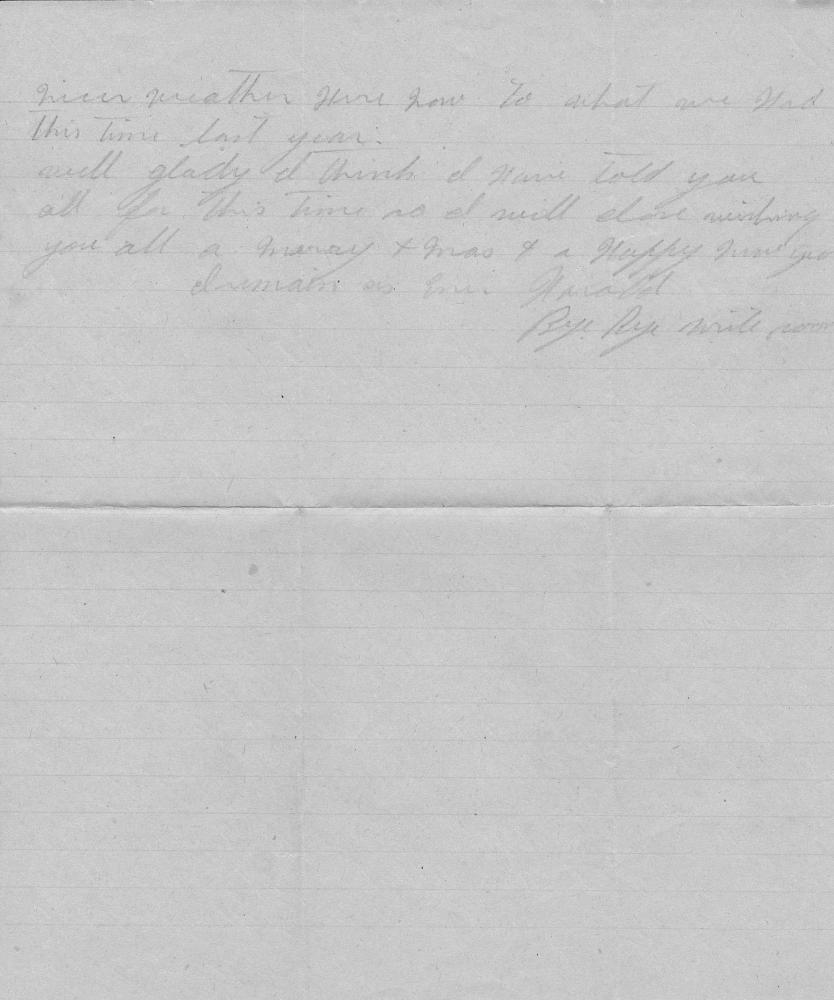 nicer weather here now to what we had
this time last year.
well glady I think I have told you
all for this time so I will close wishing
you all a merray Xmas & a Happy new yea
I remain as Ever Harold
Bye Bye write soon